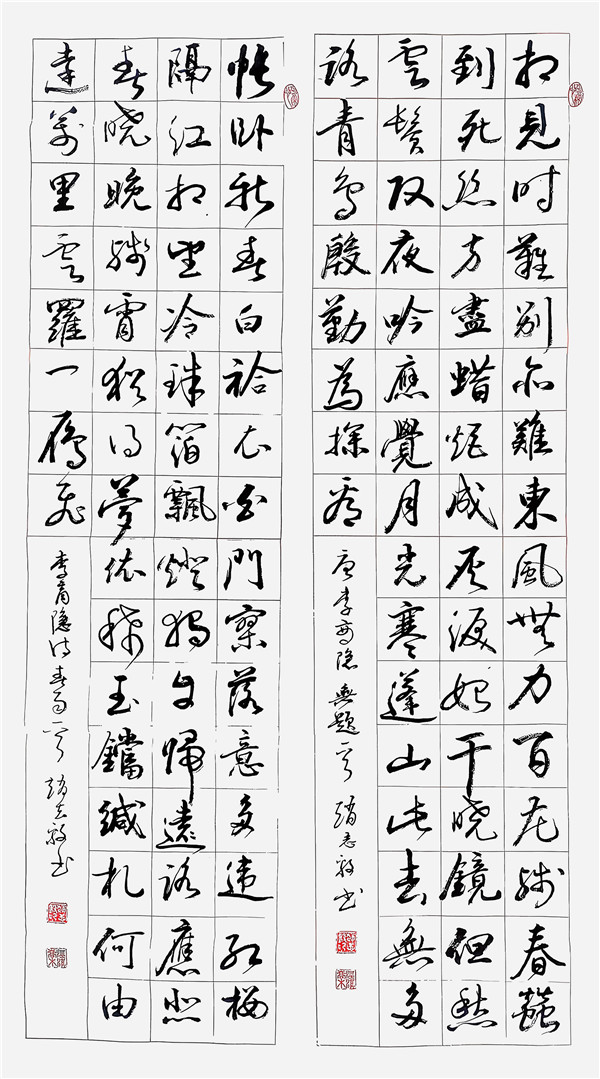 相見时難别亦難東風無力百花殘春蠶
到死絲方盡蜡炬成灰淚始干曉鏡但愁
雲鬢改夜吟應覺月光寒蓬山此去無多
路青鳥殷勤為探看
唐李商隱無題一首 書
悵臥新春白袷衣白門寥落意多違紅樓
隔紅相望冷珠箔飄燈獨自歸遠路應悲
春曉晚殘宵猶得夢依稀玉鐺緘札何由
達萬里雲羅一雁飛
李商隱詩春雨一首 書